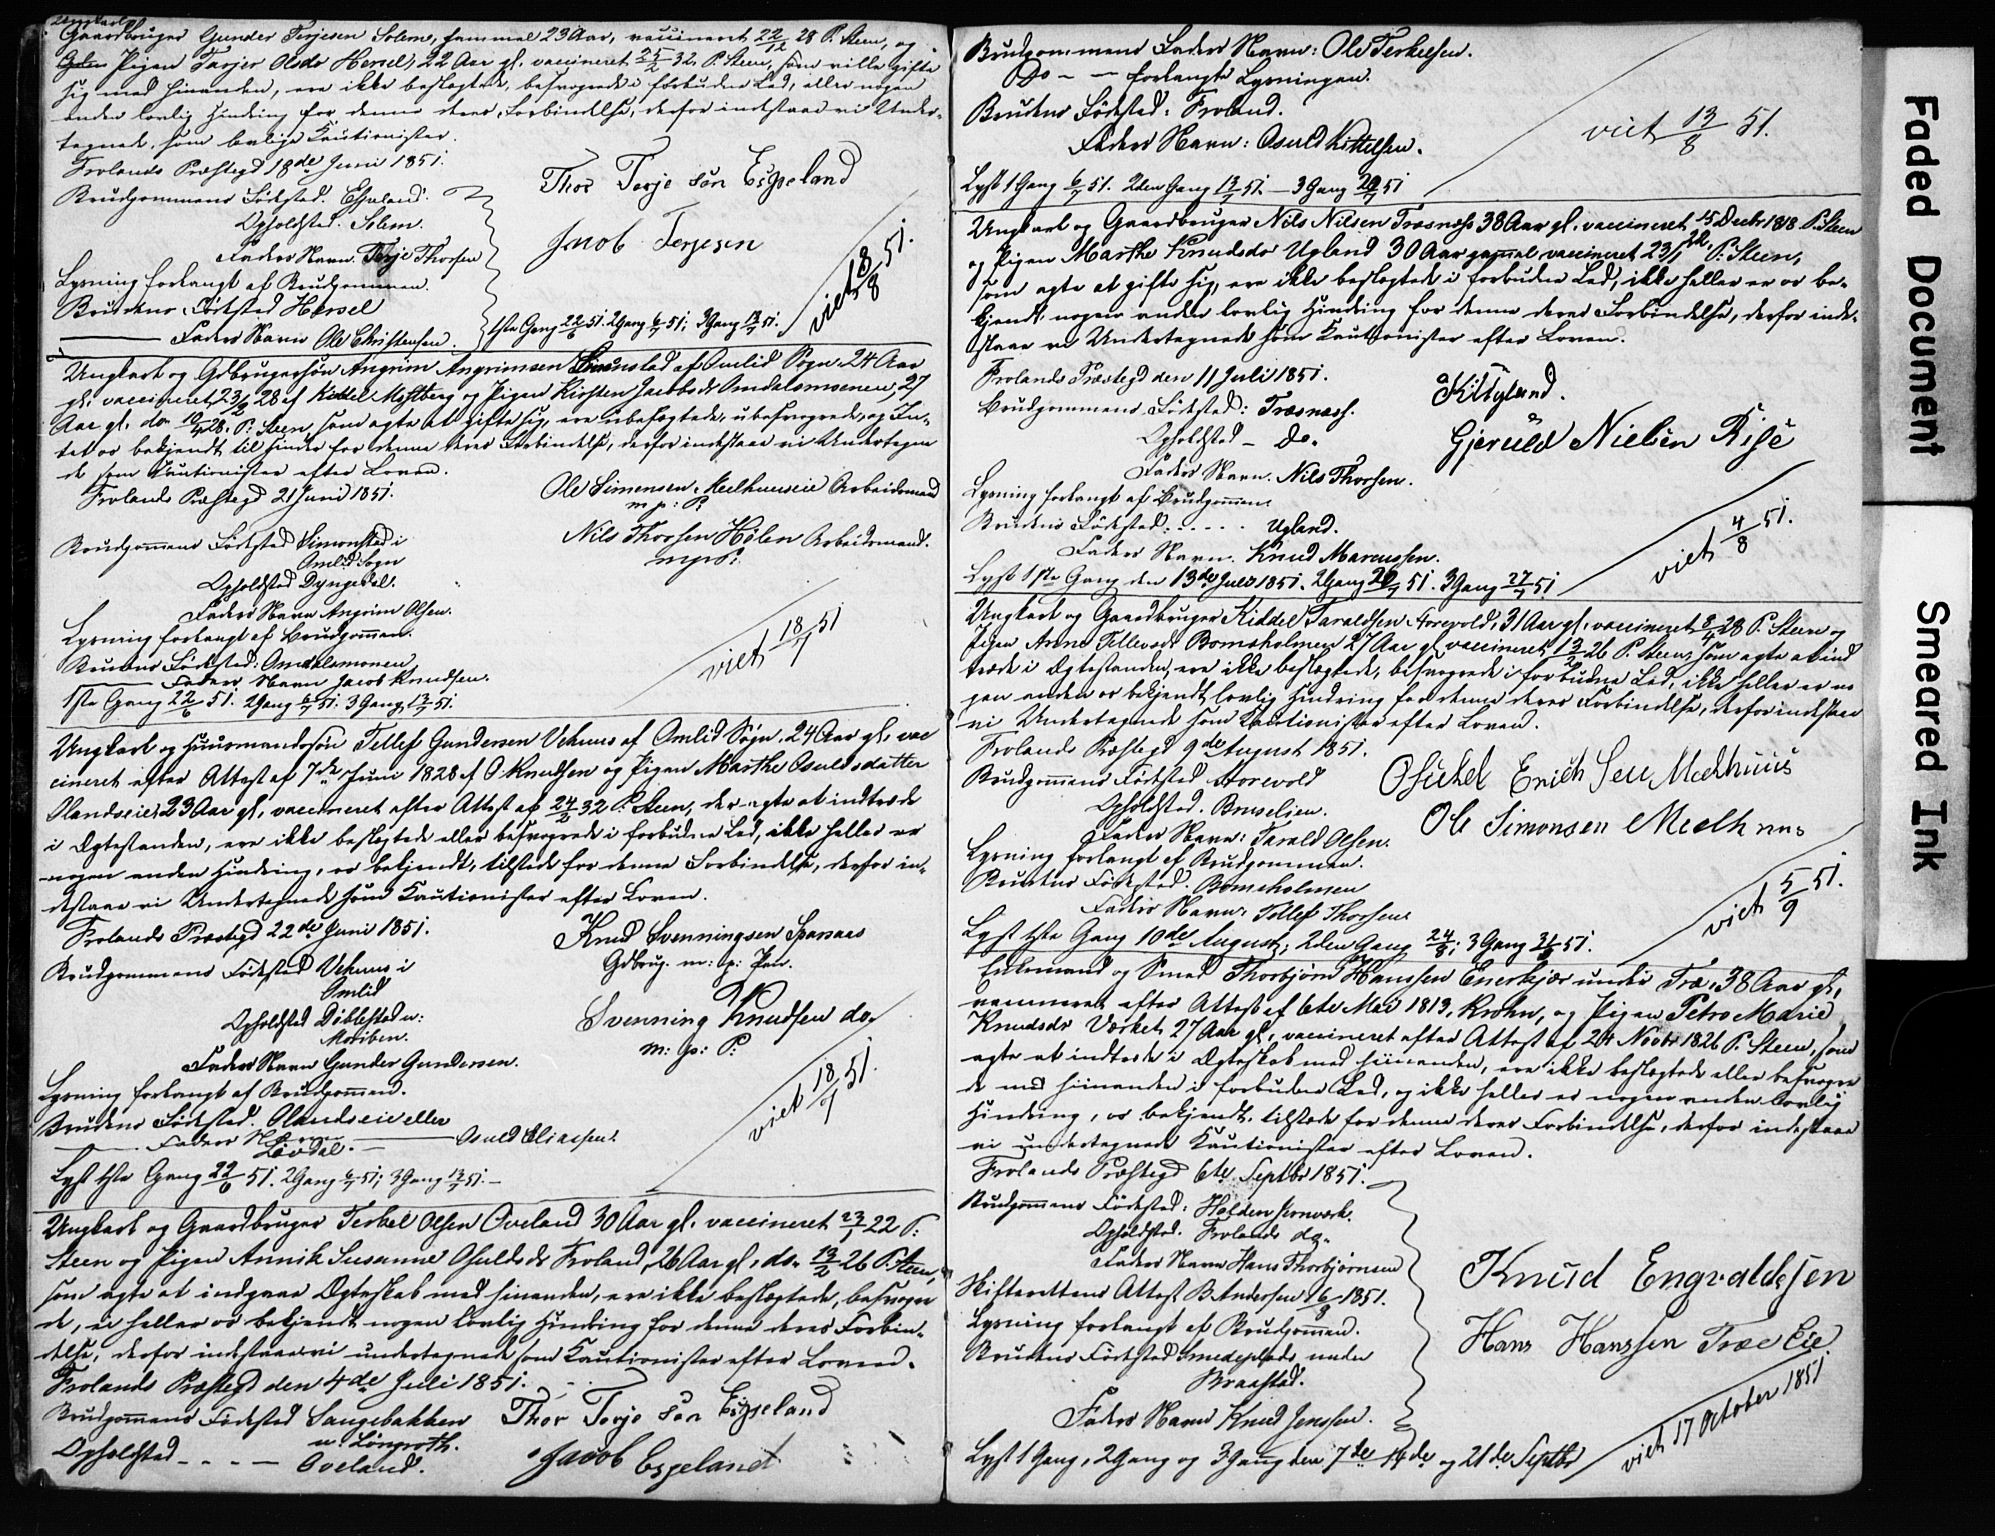 Ungkarl
Gaardbruger Gunder Terjesen Solem, gammel 23 Aar, vaccineret 22/12 28 P. Steen, og
Pigen Tarjer Olsdr Hersel, 22 Aar gl. vaccineret 25/2 32 P. Steen, som ville gifte
sig med hinanden, ere ikke beslægtede, besvogrede i forbudne Led, eller nogen
anden lovlig Hindring for denne deres Forbindelse, derfor indestaae vi Under-
tegnede som lovlige Kautionister.
Frolands Præstegd 18de Juni 1851.
Brudgommens Fødested. Espeland.
Opholdsted. Solem.
Faders Navn. Terje Thorsen
Lysning forlangt af Brudgommen.
Brudens Fødested Hersel
Faders Navn Ole Christensen.
Thor Terje sön Espeland
Jacob Terjesen
1ste Gang 22/6 51. 2 Gang 6/7 51; 3 Gang 13/7 51.
viet 8/8 51.
Ungkarl og Gdbrugersøn Angrim Angrimsen Simonstad af Omlid Sogn, 24 Aar
gl. vaccineret 23/12 28 af Kittel Mostberg og Pigen Kirsten Jacobsdr Omdalsmoenen, 27
Aar gl. do 10/4 28. P. Steen, som agte at gifte sig, ere ubeslægtede, ubesvogrede, og In-
tet os bekjendt til Hinder for denne deres Forbindelse, derfor indestaae vi Undertegne
de som Kautionister efter Loven.
Frolands Præstegd 21 Juni 1851.
Ole Simensen Meelhuuseie Arbeidsmand
m: p: P:
Nils Thorsen Hølen Arbeidsmand.
m p P.
Brudgommens Fødested Simonsted i
Omlid Sogn
Opholdsted Dyngedal.
Faders Navn Angrim Olsen.
Lysning forlangt af Brudgommen.
Brudens Fødested: Omdalsmonen
Faders Navn Jacob Knudsen.
1ste Gang 22/6 51. 2 Gang 6/7 51. 3 Gang 13/7 51.
viet 18/7 51
Ungkarl og Huusmandssøn Tellef Gundersen Vehuus af Omlid Sogn, 24 Aar gl. vac
cineret efter Attest af 7de Juni 1828 af O Knudsen og Pigen Marthe Osuldsdatter
Olandseie 23 Aar gl, vaccineret efter Attest af 24/2 32 P. Steen, der agte at indtræde
i Ægtestanden, ere ikke beslægtede eller besvogrede i forbudne Led, ikke heller er
nogen anden Hindring, os bekjendt, tilstede for denne Forbindelse, derfor in-
destaae vi Undertegnede som Kautionister efter Loven.
Frolands Præstegd 22de Juni 1851.
Knud Svenningsen Sparsaas
Gdbrug. m: p: Pen.
Svenning Knudsen do.
m: p: P:
Brudgommens Fødested Vehuus i
Omlid
Opholdsted Döblested u:
Faders Navn Gunder Gundersen.
Lysning forlangt af Brudgommen.
Brudens Fødested. Olandseie eller
Lövdal.
Faders N Osuld Eliassen.
Lyst 1ste Gang 22/6 51. 2 Gang 6/7 51; 3 Gang 13/7 51.
viet 18/7 51.
Ungkarl og Gaardbruger Terkel Olsen Oveland 30 Aar gl. vaccineret 23/1 22 P.
Steen og Pigen Annik Susanne Osuldsdr Froland, 26 Aar gl, do. 13/2 26 P. Steen,
som agte at indgaae Ægteskab med hinanden, ere ikke beslægtede, besvogre
de, ei heller os bekjendt nogen lovlig Hindring for denne deres Forbin-
delse, derfor indestaae vi undertegnede som Kautionister efter Loven.
Frolands Præstegd den 4de Juli 1851.
Brudgommens Fødested Saugebakken
u. Lönroth.
Opholdsted - - - - Oveland.
Thor Terje sön Espeland
Jacob Espeland
Brudgommens Faders Navn: Ole Terkelsen.
Do - - forlangte Lysningen.
Brudens Fødested: Froland.
Faders Navn: Osuld Kittelsen.
Lyst 1 Gang 6/7 51. 2den Gang 13/7 51. - 3 Gang 20/7 51
viet 13/8 51.
Ungkarl og Gaardbruger Nils Nilsen Træsnæss 38 Aar gl. vaccineret 15 Decbr 1818 P. Steen
og Pigen Marthe Knudsdr Ugland 30 Aar gammel vaccineret 23/1 22, P. Steen,
som agte at gifte sig, ere ikke beslægtede i forbudne Led, ikke heller er os be-
kjendt nogen anden lovlig Hindring for denne deres Forbindelse, derfor inde-
staae vi Undertegnede som Kautionister efter Loven.
Frolands Præstegd den 11 Juli 1851.
Brudgommens Fødested: Træsnæss.
Opholdsted - do.
Faders Navn. Nils Thorsen.
Lysning forlangt af Brudgommen.
Brudens Fødested - - - - - Ugland.
Faders Navn. Knud Marcussen.
Lyst 1ste Gang den 13de Juli 1851. 2 Gang 20/7 51. 3 Gang 27/7 51.
K Ugland.
Gjeruld Nielsen Rise
viet 4/8 51.
Ungkarl og Gaardbruger Kiddel Taraldsen Horevold, 31 Aar gl. vaccineret 2/4 28 P. Steen og
Pigen Anne Tellevsdr Bomsholmen 27 Aar gl vaccineret 13/2 26 P. Steen, som agte at ind
træde i Ægtestanden, ere ikke beslægtede, besvogrede i forbudne Led, ikke heller er no
gen anden os bekjendt lovlig Hindring for denne deres Forbindelse, derfor indestaae
vi Undertegnede som Kautionister efter Loven.
Frolands Præstegd 9de August 1851.
Brudgommens Fødested Horevold
Opholdsted. Bruseljen.
Faders Navn: Tarald Olsen.
Lysning forlangt af Brudgommen.
Brudens Fødested. Bomsholmen
Faders Navn: Tellef Thorsen.
Lyst 1ste Gang 10de August; 2den Gang 24/8; 3 Gang 31/8 51.
Osuld Erich Sen Meelhuus
Ole Simonsen Meelhuus
viet 5/9 51.
Enkemand og Smed Thorbjörn Hanssen Enerkjær under Træ, 38 Aar gl,
vaccineret efter Attest af 6te Mai 1813, Krohn, og Pigen Petro Marie
Knudsdr Værket, 27 Aar gl, vaccineret efter Attest af 24 Novbr 1826 P. Steen, som
agte at indtræde i Ægteskab med hinanden, ere ikke beslægtede eller besvogre
de med hinanden i forbudne Led, og ikke heller er nogen anden lovlig
Hindring, os bekjendt, tilstede for denne deres Forbindelse, derfor indestaae
vi undertegnede Kautionister efter Loven.
Frolands Præstegd 6te Septbr 1851.
Brudgommens Fødested: Holden Jernværk.
Opholdsted. Frolands do.
Faders Navn Hans Thorbjörnsen
Skifterettens Attest B. Andersen 16/9 1851.
Lysning forlangt af Brudgommen.
Brudens Fødested Smedeplads under
Braastad.
Faders Navn Knud Jenssen.
Lyst 1 Gang, 2 Gang og 3 Gang den 7de 14de og 21de Septbr
Knud Engvaldsen
Hans Hanssen Træ Eie
viet 17 October 1851
Faded Document
Smeared Ink